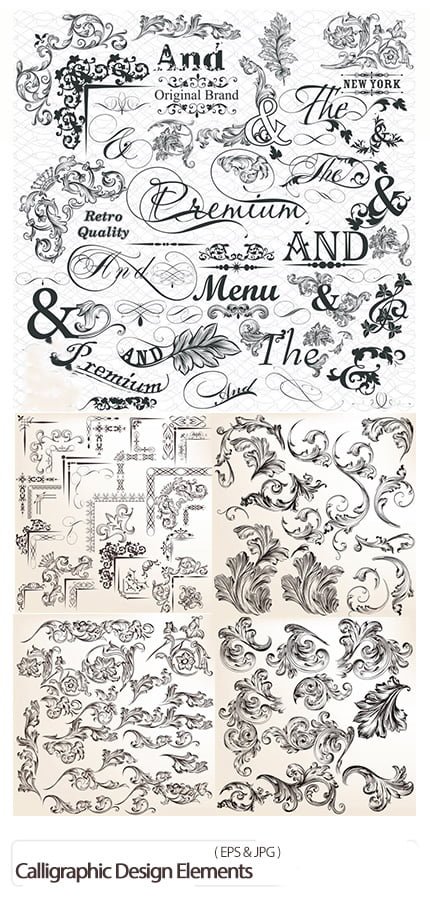 And
Original Brand
NEW YORK
The
&
&
The
&
Premium
Retro
Quality
AND
And
Menu
&
&
AND
The
&
Premium
And
( EPS & JPG )
Calligraphic Design Elements